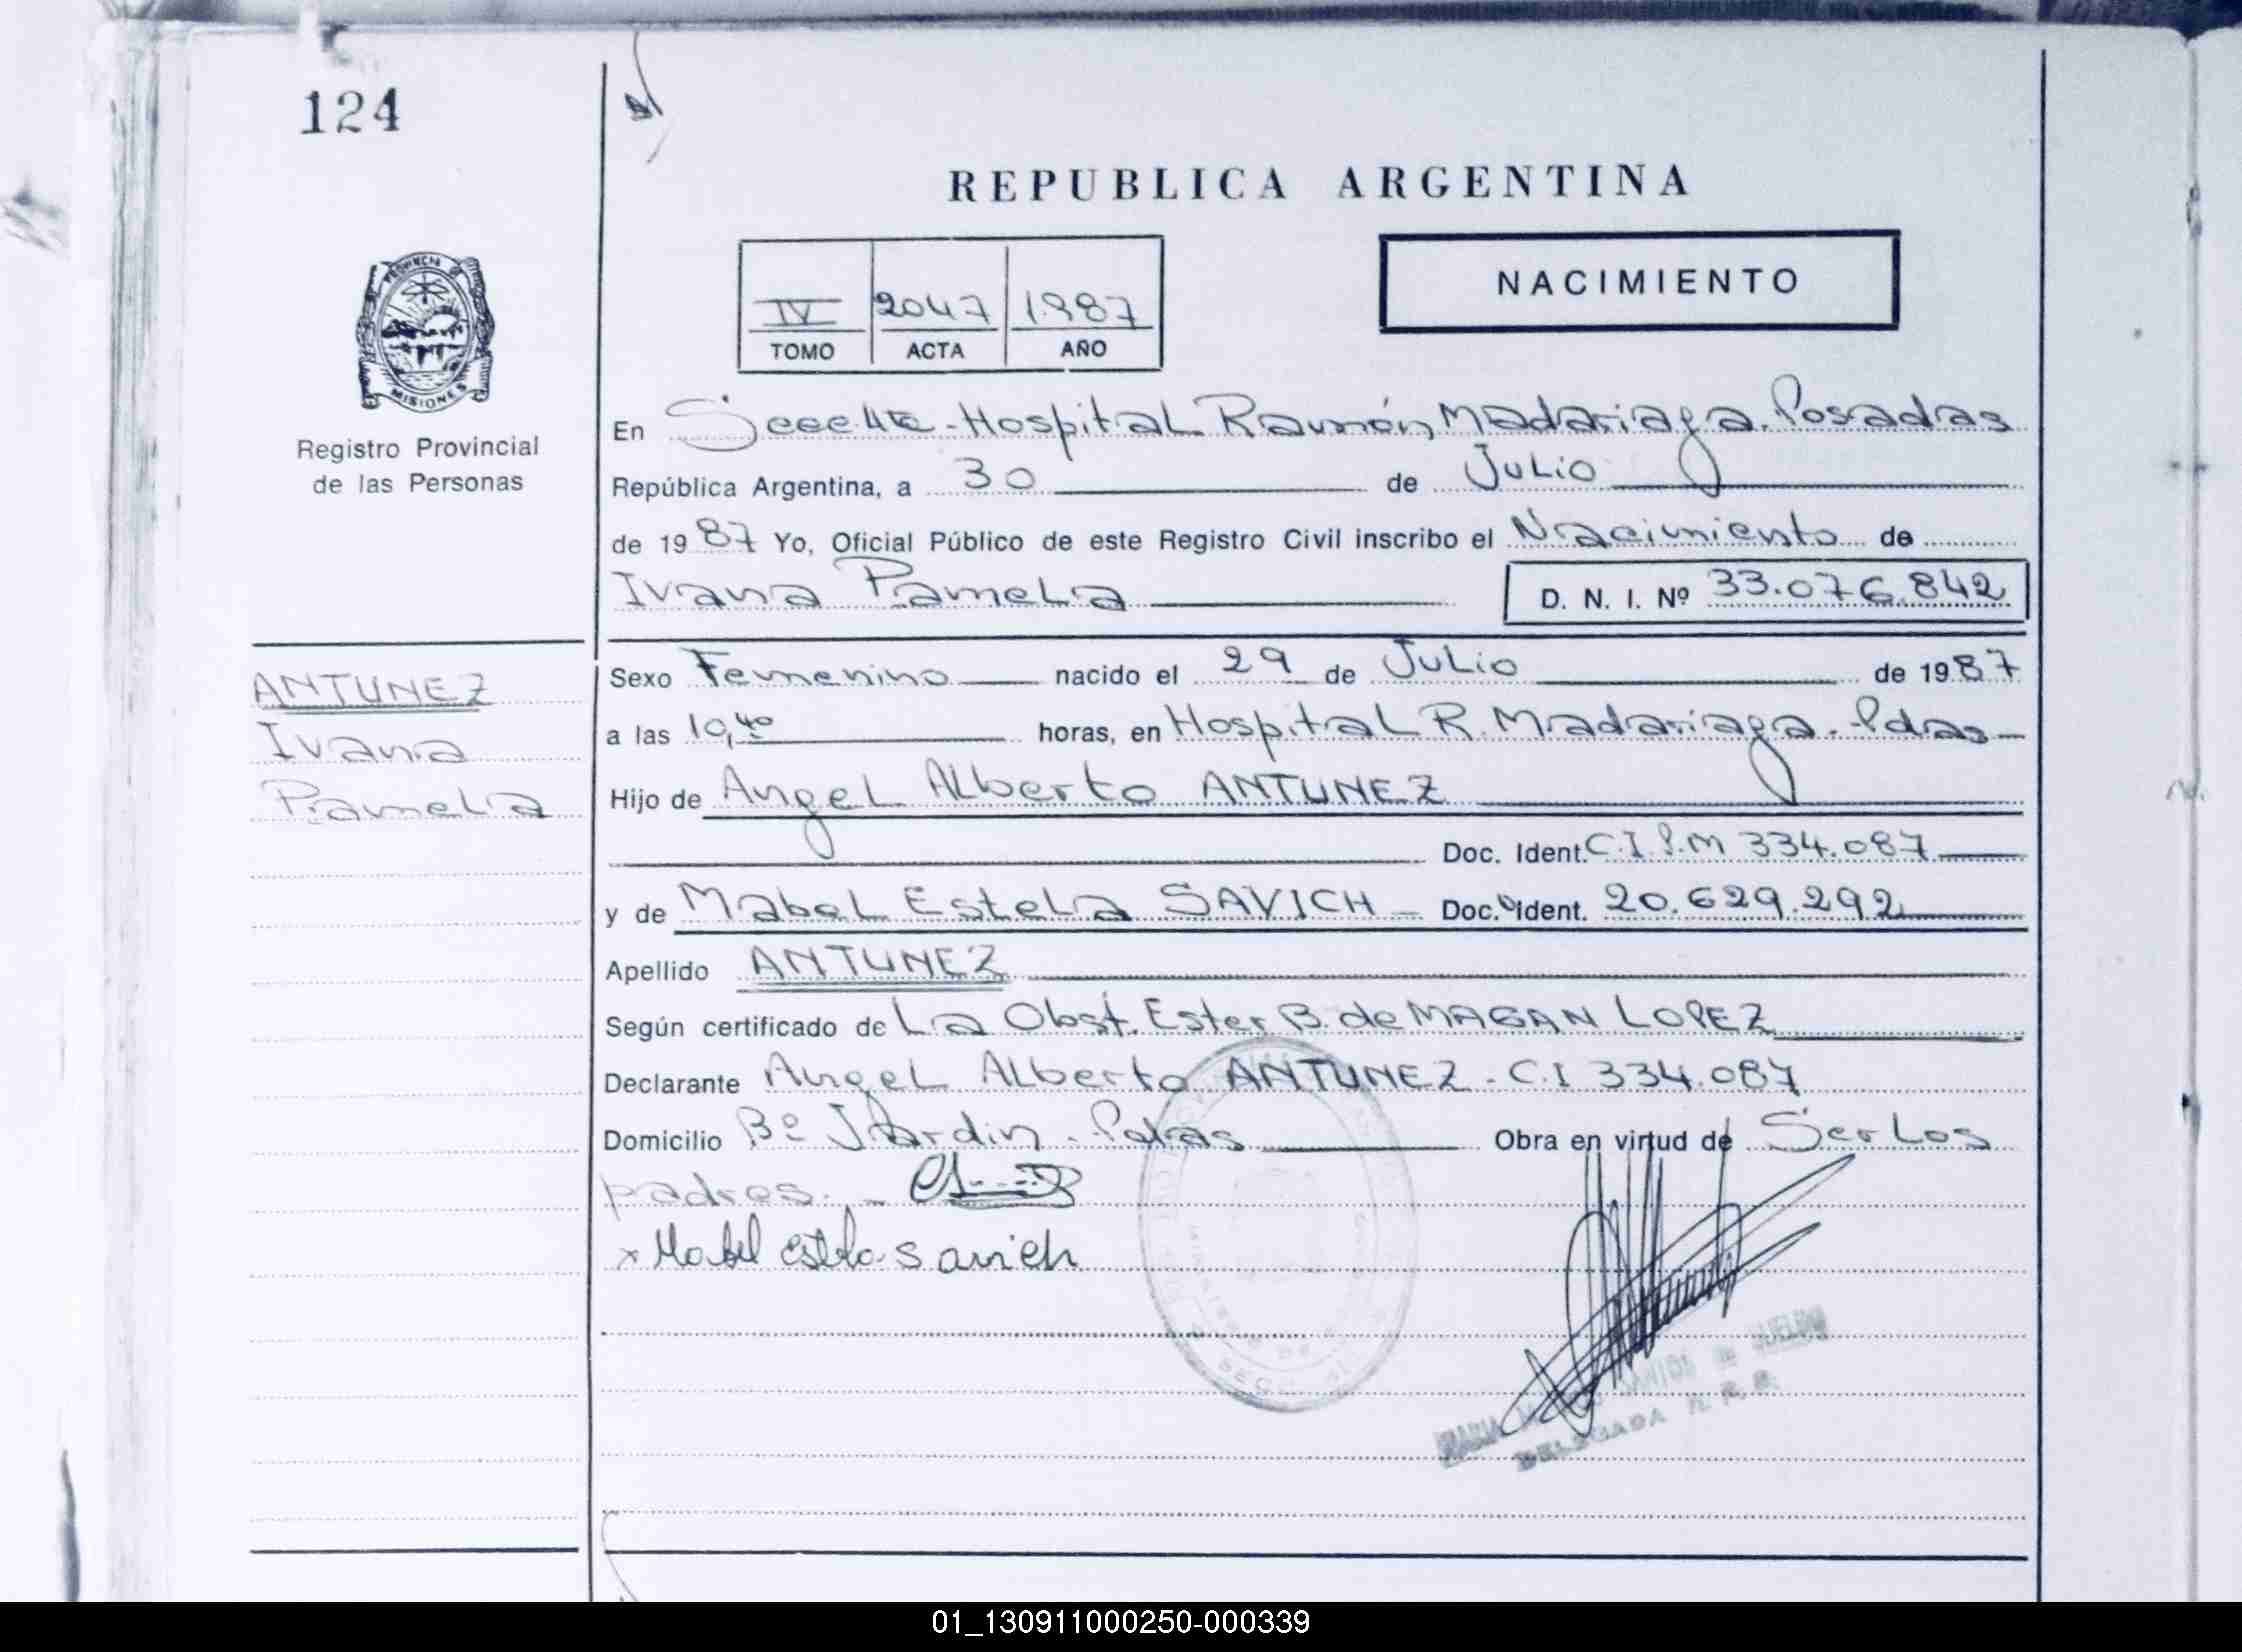 124
REPUBLICA ARGENTINA
IV 2047 1987
TOMO ACTA AÑO
NACIMIENTO
PROVINCIA DE
MISIONES
Registro Provincial
de las Personas
En Secc 4ta - Hospital Ramón Madariaga. Posadas
República Argentina, a 30 de Julio
de 1987 Yo, Oficial Público de este Registro Civil inscribo el Nacimiento de
Ivana Pamela D. N. I. Nº 33.076.842
ANTUNEZ
Ivana
Pamela
Sexo Femenino nacido el 29 de Julio de 1987
a las 10,40 horas, en Hospital R. Madariaga. Pdas
Hijo de Angel Alberto ANTUNEZ
Doc. Ident. C.I.P.M 334.087
y de Mabel Estela SAVICH Doc. Ident. 20.629.292
Apellido ANTUNEZ
Según certificado de La Obst. Ester B. de MAGAN LOPEZ
Declarante Angel Alberto ANTUNEZ - C.I 334.087
Domicilio Bº Jardin - Pdas Obra en virtud de Ser Los
padres. -
x Mabel Estela Savich
DELEGADA R. P. P.
01_130911000250-000339